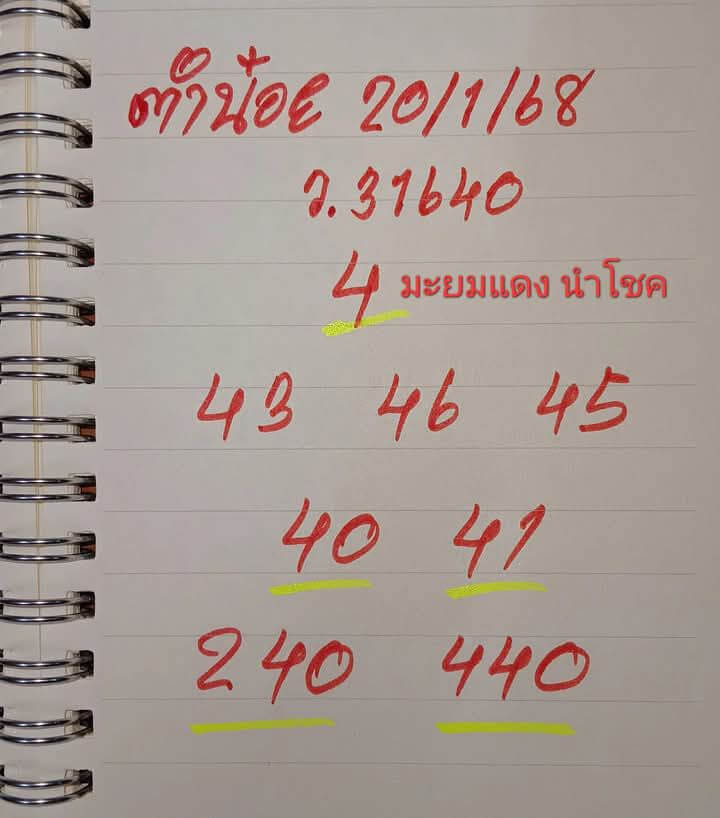 ตำน้อย 20/1/68
ว.31640
4 มะยมแดง นำโชค
43 46 45
40 41
240 440